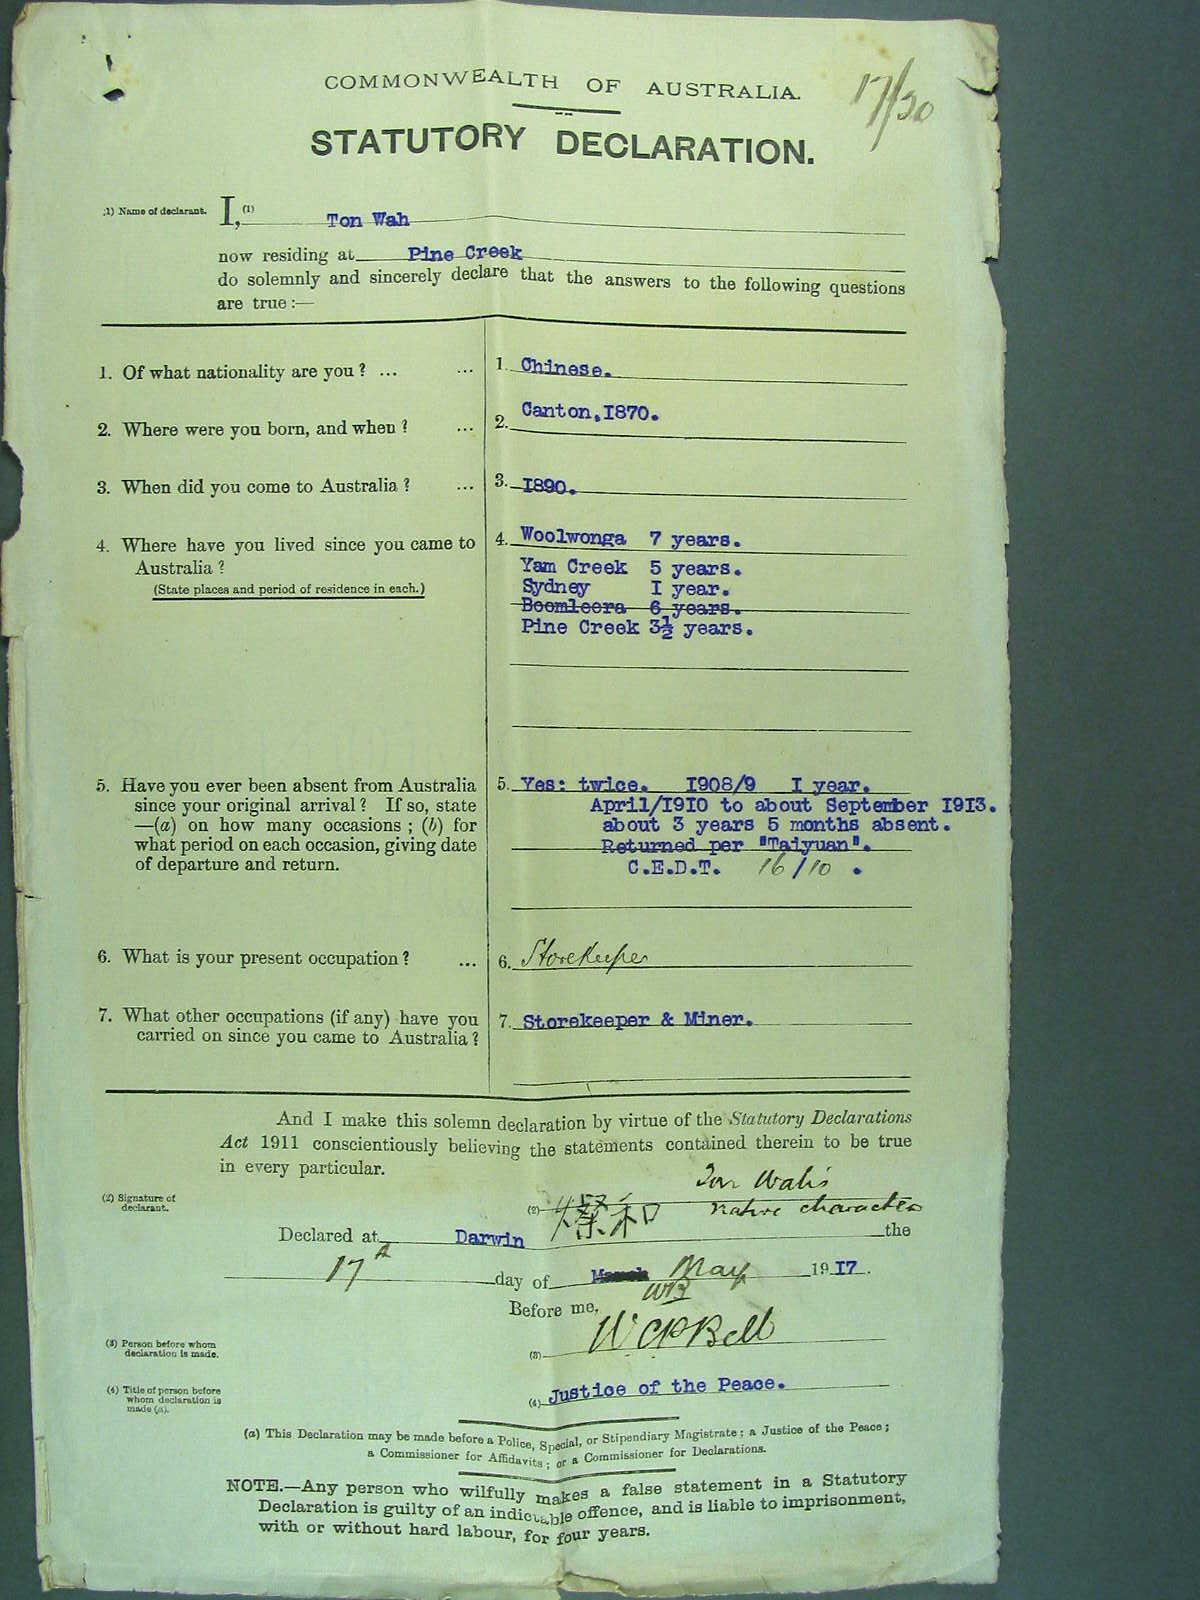 COMMONWEALTH OF AUSTRALIA.
17/20
STATUTORY DECLARATION.
(1) Name of declarant. I,(1) Ton Wah
now residing at Pine Creek
do solemnly and sincerely declare that the answers to the following questions
are true :—
1. Of what nationality are you ? ... ... 1. Chinese.
2. Where were you born, and when ? ... 2. Canton,1870.
3. When did you come to Australia ? ... 3. 1890.
4. Where have you lived since you came to 4. Woolwonga 7 years.
Australia ? Yam Creek 5 years.
(State places and period of residence in each.) Sydney I year.
Boomleera 6 years.
Pine Creek 3½ years.
5. Have you ever been absent from Australia 5. Yes: twice. 1908/9 I year.
since your original arrival ? If so, state April/1910 to about September 1913.
—(a) on how many occasions ; (b) for about 3 years 5 months absent.
what period on each occasion, giving date Returned per "Taiyuan".
of departure and return. C.E.D.T. 16/10 .
6. What is your present occupation ? ... 6. Storekeeper
7. What other occupations (if any) have you 7. Storekeeper & Miner.
carried on since you came to Australia ?
And I make this solemn declaration by virtue of the Statutory Declarations
Act 1911 conscientiously believing the statements contained therein to be true
in every particular.
Ton Wah's
(2) Signature of declarant. (2) 燦和 native character
Declared at Darwin the
17th day of March May 1917.
WB
Before me,
(3) Person before whom declaration is made. (3) W C P Bell
(4) Title of person before whom declaration is made (a). (4) Justice of the Peace.
(a) This Declaration may be made before a Police, Special, or Stipendiary Magistrate ; a Justice of the Peace ;
a Commissioner for Affidavits ; or a Commissioner for Declarations.
NOTE.—Any person who wilfully makes a false statement in a Statutory
Declaration is guilty of an indictable offence, and is liable to imprisonment,
with or without hard labour, for four years.